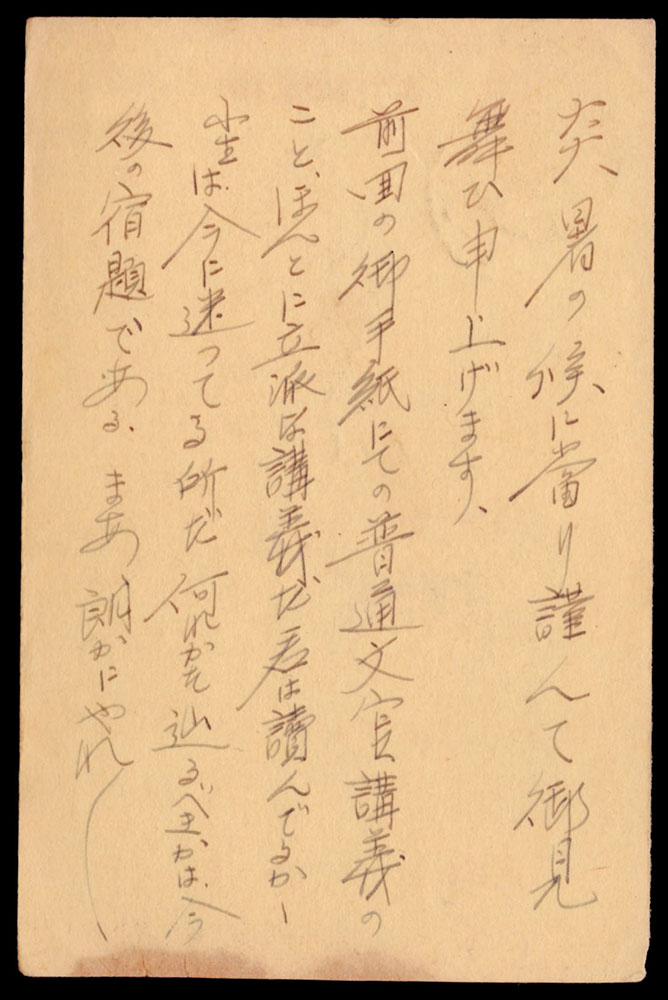 炎暑の候に當り謹んて御見
舞ひ申上げます、
前回の御手紙にての普通文官講義の
こと、ほんとに立派な講義だ君は讀んでるかー
小生は今に迷ってる所だ何れかを辿るべきかは今
後の宿題である、まあ朗かにやれ